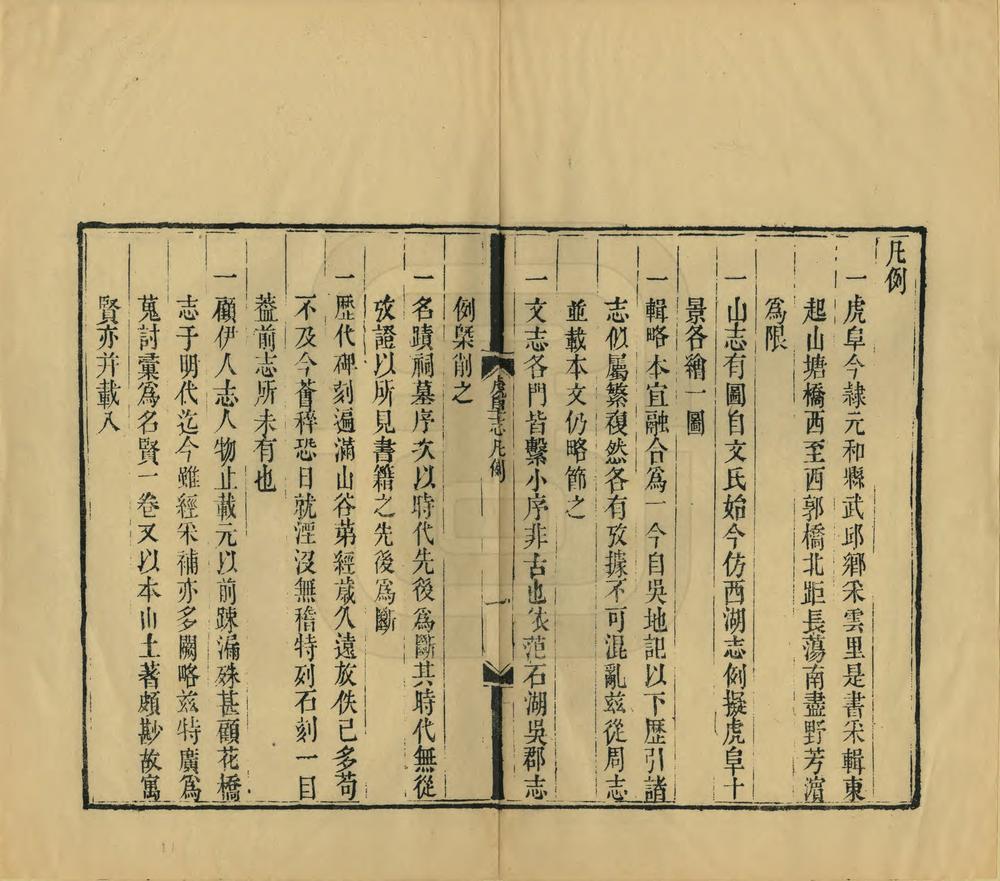 凡例
一虎阜今隸元和縣武邱鄉采雲里是書采輯東
起山塘橋西至西郭橋北距長蕩南盡野芳濱
爲限
一山志有圖自文氏始今仿西湖志例擬虎阜十
景各繪一圖
一輯略本宜融合爲一今自吳地記以下歷引諸
志似屬繁複然各有攷據不可混亂茲從周志
並載本文仍略節之
一文志各門皆繫小序非古也依范石湖吳郡志
虎阜志凡例
一
例槩削之
一名蹟祠墓序次以時代先後爲斷其時代無從
攷證以所見書籍之先後爲斷
一歷代碑刻遍滿山谷苐經歲久遠放佚已多苟
不及今薈稡恐日就湮沒無稽特列石刻一目
葢前志所未有也
一顧伊人志人物止載元以前踈漏殊甚顧花橋
志于明代迄今雖經采補亦多闕略兹特廣爲
蒐討彙爲名賢一卷又以本山土著頗尠故寓
賢亦并載入